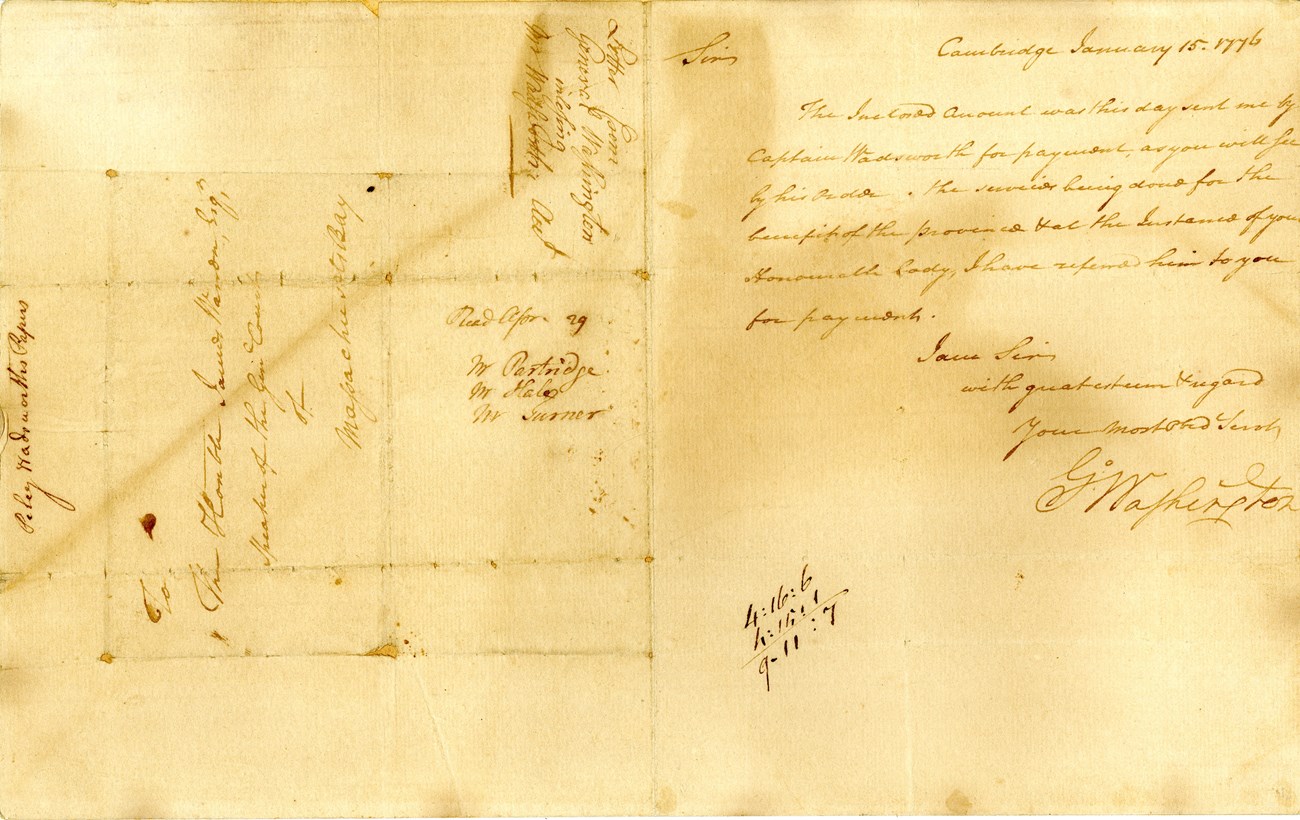 Sir
Cambridge January 15. 1776
The Inclosed Amount was this day sent me by
Captain Wadsworth for payment, as you will see
by his order. The services being done for the
benefit of the province & at the Instance of your
Honourable Lady, I have referred him to you
for payment.
I am Sir
with great esteem & regard
Your Most Obed Servt
Go Washington
4:16:6
4:15:1
9-11:7
Letter from
General Washington
inclosing
Mr Wadsworths Act
Read Apr. 29
Mr Partridge
Mr Hale
Mr Turner
To
The Honble James Warren, Esqr
Speaker of the Genl Court
of
Massachusetts Bay
Peleg Wadsworths Papers